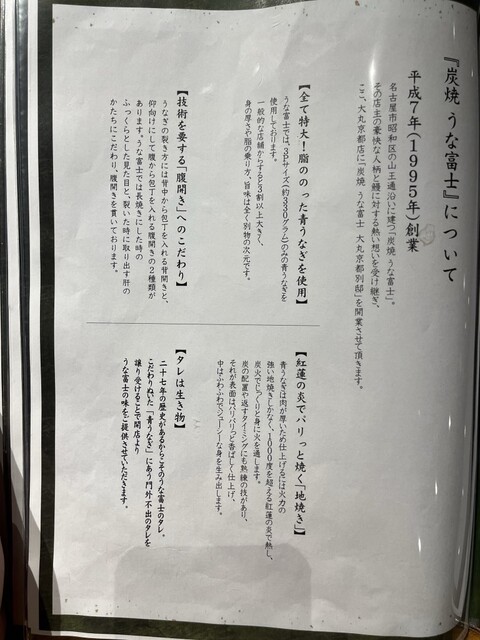 『炭焼 うな富士』について
平成7年(1995年)創業
名古屋市昭和区の山王通沿いに建つ「炭焼 うな富士」。
その店主の豪快な人柄と鰻に対する熱い想いを受け継ぎ、
ここ、大丸京都店に「炭焼 うな富士 大丸京都別邸」を開業させて頂きます。
【全て特大！脂ののった青うなぎを使用】
うな富士では、3Pサイズ(約330グラム)のみの青うなぎを
使用しております。
一般的な店舗からすると3割以上大きく、
身の厚さや脂の乗り方、旨味は全く別物の次元です。
【技術を要する「腹開き」へのこだわり】
うなぎの裂き方には背中から包丁を入れる背開きと、
仰向けにして腹から包丁を入れる腹開きの2種類が
あります。うな富士では長焼きにした時の
ふっくらとした見た目と、裂いた時に取り出す肝の
かたちにこだわり、腹開きを貫いております。
【紅蓮の炎でパリっと焼く「地焼き」】
青うなぎは肉が厚いため仕上げるには火力の
強い地焼きしかなく、1000度を超える紅蓮の炎で熱し、
炭火でじっくりと身に火を通します。
炭の配置や返すタイミングにも熟練の技があり、
それが表面はパリパリっと香ばしく仕上げ、
中はふわふわでジューシーな身を生み出します。
【タレは生き物】
二十七年の歴史があるからこそのうな富士のタレ。
こだわりぬいた「青うなぎ」にあう門外不出のタレを
譲り受けることで開店より
うな富士の味をご提供させていただきます。